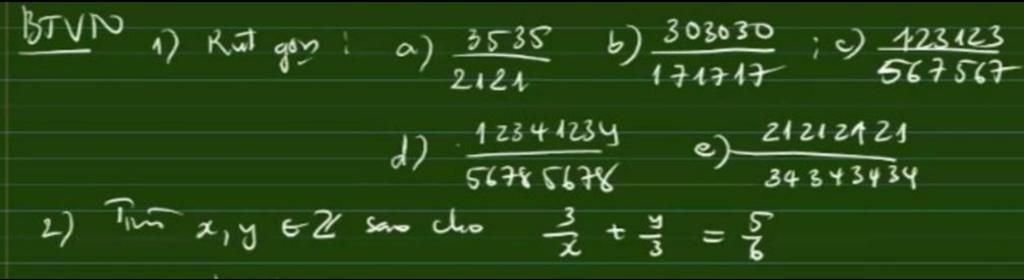 BTVN 1) Rút gọn : a) 3535/2121 b) 303030/171717 ; c) 123123/567567
d) 12341234/56785678 e) 21212121/34343434
2) Tìm x, y ∈ Z sao cho 3/x + y/3 = 5/6